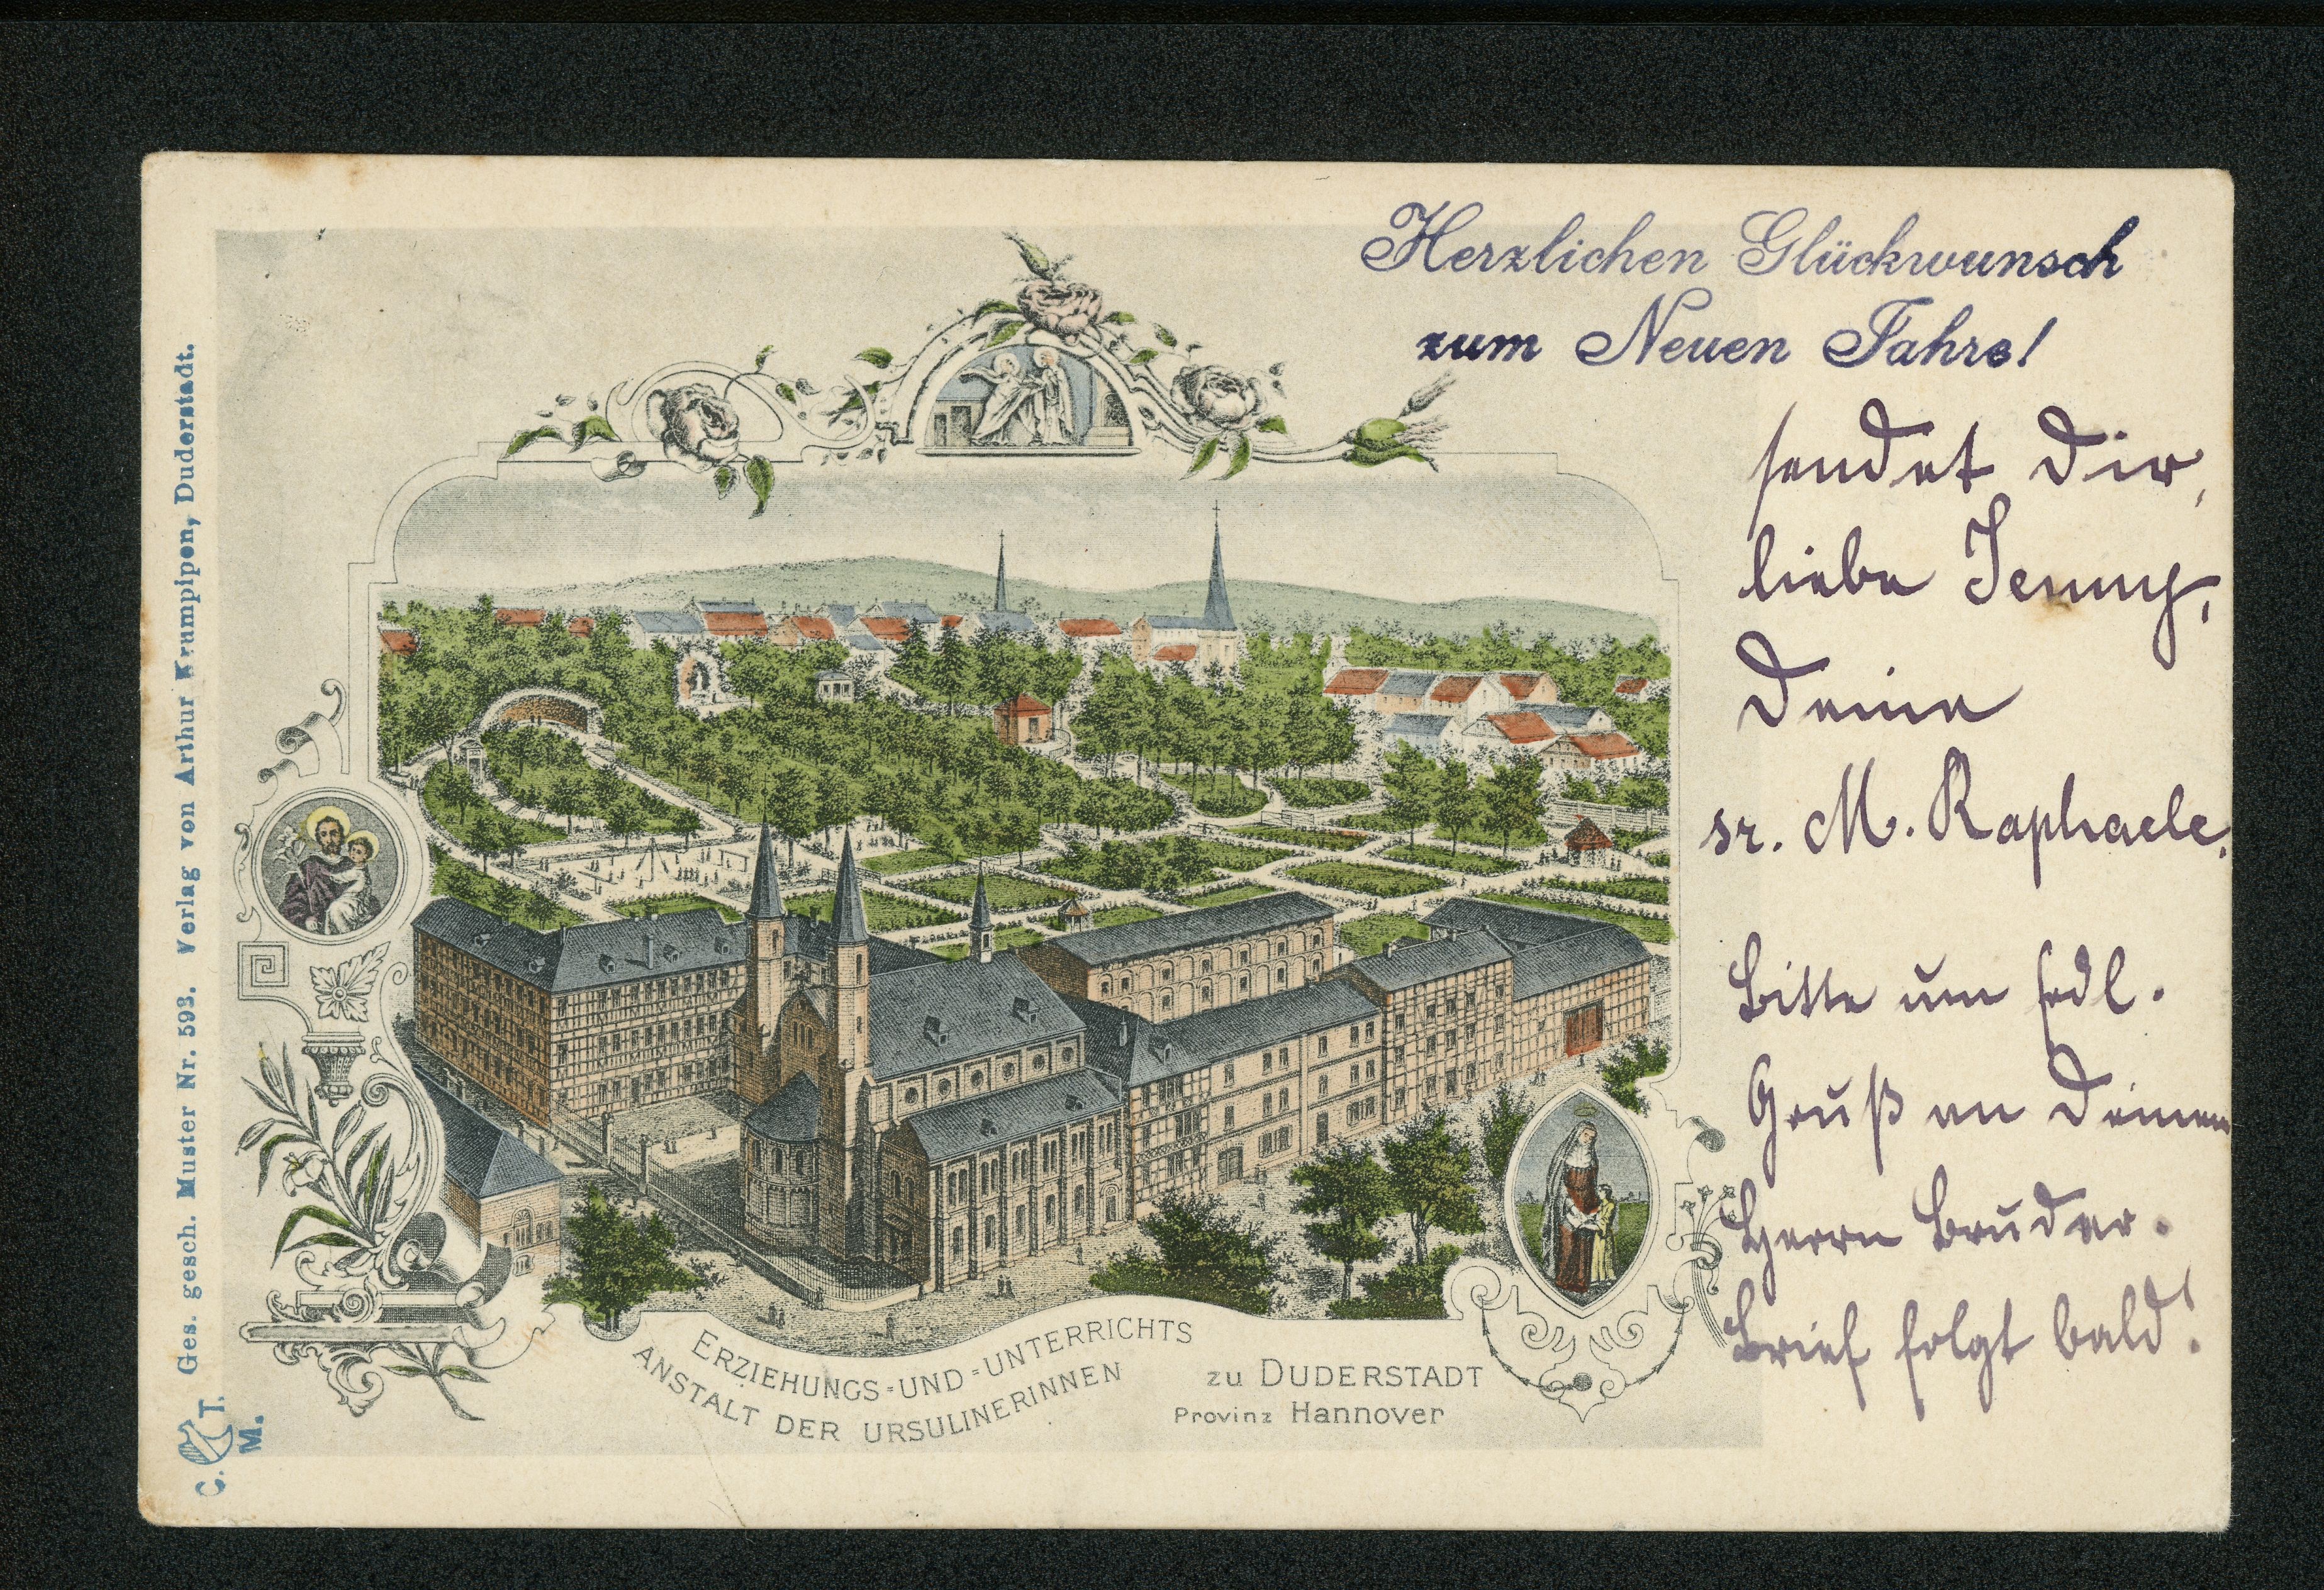 Herzlichen Glückwunsch
zum Neuen Jahre!
sendet Dir,
liebe Jenny,
Deine
sr. M. Raphaele.
Bitte um frdl.
Gruß an Deinen
Herrn Bruder.
Brief folgt bald!
ERZIEHUNGS-UND-UNTERRICHTS
ANSTALT DER URSULINERINNEN
ZU DUDERSTADT
Provinz Hannover
Ges. gesch. Muster Nr. 593. Verlag von Arthur Krumpipen, Duderstadt.
C. T.
M.